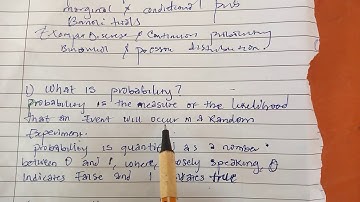 marginal & conditional prob
Bernoli trials
Example Discrete & Continuous probability
Binomial & poisson distribution.
1) What is probability?
probability is the measure of the likelihood
that an Event will occur in a Random
Experiment.
probability is quantified as a number
between 0 and 1, where, loosely speaking, 0
indicates False and 1 true